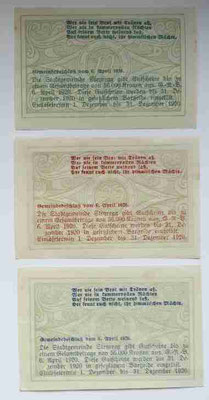 Wer nie sein Brot mit Tränen aß,
Wer nie in kummervollen Nächten
Auf seinem Bette weinend saß,
Der kennt euch nicht, ihr himmlischen Mächte.
Gemeindebeschluß vom 6. April 1920.
Die Stadtgemeinde Steyregg gibt Gutscheine bis zu
einem Gesamtbetrage von 36.000 Kronen aus. G.-R.-B.
6. April 1920. Diese Gutscheine werden bis 31. De-
zember 1920 in gesetzlichem Bargelde eingelöst.
Einlösfrist 1. Dezember bis 31. Dezember 1920.
Wer nie sein Brot mit Tränen aß,
Wer nie in kummervollen Nächten
Auf seinem Bette weinend saß,
Der kennt euch nicht, ihr himmlischen Mächte.
Gemeindebeschluß vom 6. April 1920.
Die Stadtgemeinde Steyregg gibt Gutscheine bis zu
einem Gesamtbetrage von 36.000 Kronen aus. G.-R.-B.
6. April 1920. Diese Gutscheine werden bis 31. De-
zember 1920 in gesetzlichem Bargelde eingelöst.
1. Dezember bis 31. Dezember 1920.
Wer nie sein Brot mit Tränen aß,
Wer nie in kummervollen Nächten
Auf seinem Bette weinend saß,
Der kennt euch nicht, ihr himmlischen Mächte.
Gemeindebeschluß vom 6. April 1920.
Die Stadtgemeinde Steyregg gibt Gutscheine bis zu
einem Gesamtbetrage von 36.000 Kronen aus. G.-R.-B.
6. April 1920. Diese Gutscheine werden bis 31. De-
zember 1920 in gesetzlichem Bargelde eingelöst.
1. Dezember bis 31. Dezember 1920.